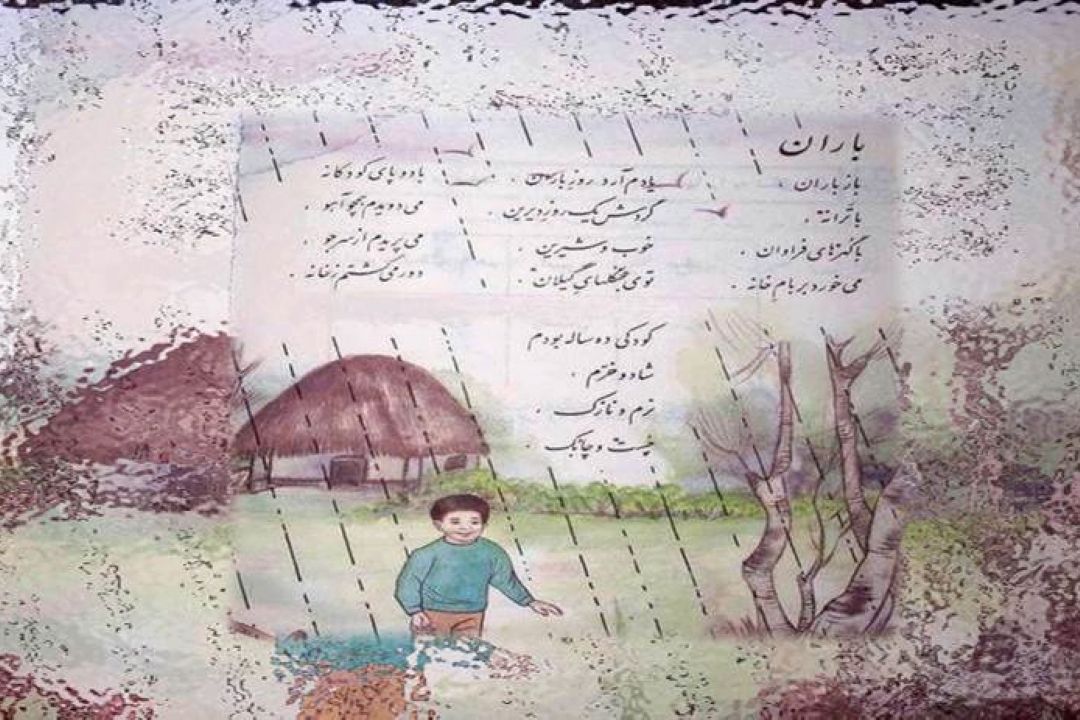 باران
باز باران ،
با ترانه ،
با گهرهای فراوان ،
می خورد بر بام خانه .
یادم آرد روز باران ،
گردش یک روز دیرین ،
خوب و شیرین ،
توی جنگلهای گیلان .
کودکی ده ساله بودم
شاد و خرّم ،
نرم و نازک ،
چست و چابک .
با دو پای کودکانه
می دویدم همچو آهو ،
می پریدم از سر جو ،
دور می گشتم ز خانه .